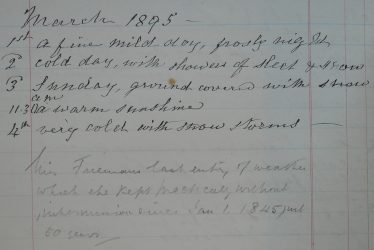 March 1895 -
1st a fine mild day, frosty night
2d cold day, with showers of sleet & snow
3d Sunday, ground covered with snow
am
11.30 a warm sunshine
4th very cold with snow storms -
last entry of weather
which she kept practically without
intermission since Jan 1 1845 just
50 years